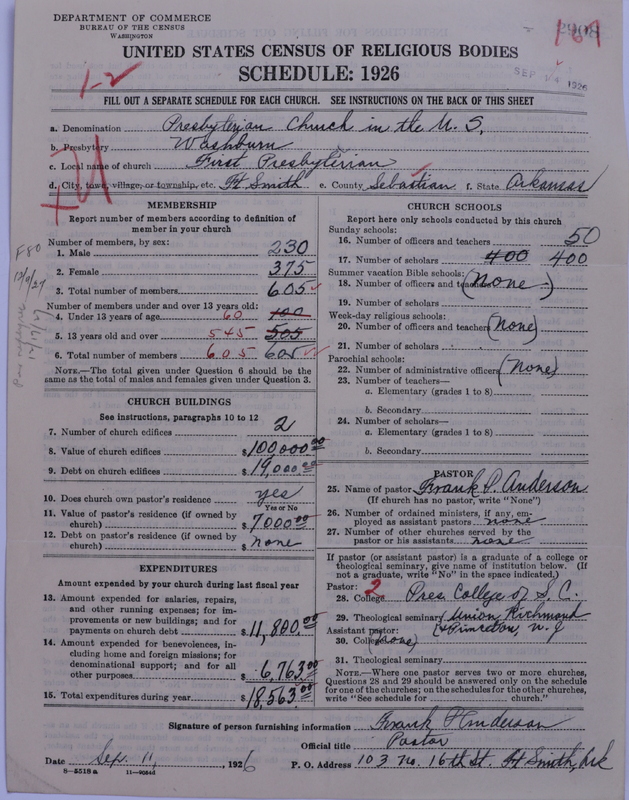 DEPARTMENT OF COMMERCE
BUREAU OF THE CENSUS
WASHINGTON
2908
167
SEP 14 1926
1-2
UNITED STATES CENSUS OF RELIGIOUS BODIES
SCHEDULE: 1926
FILL OUT A SEPARATE SCHEDULE FOR EACH CHURCH. SEE INSTRUCTIONS ON THE BACK OF THIS SHEET
a. Denomination Presbyterian Church in the U. S,
b. Presbytery Washburn
c. Local name of church First Presbyterian
d. City, town, village, or township, etc. Ft Smith e. County Sebastian f. State Arkansas
MEMBERSHIP
Report number of members according to definition of member in your church
Number of members, by sex:
1. Male 230
2. Female 375
3. Total number of members 605
Number of members under and over 13 years old:
4. Under 13 years of age 60 100
5. 13 years old and over 545 505
6. Total number of members 605 605
NOTE.—The total given under Question 6 should be the
same as the total of males and females given under Question 3.
CHURCH BUILDINGS
See instructions, paragraphs 10 to 12
7. Number of church edifices 2
8. Value of church edifices $100,000.00
9. Debt on church edifices $19,000.00
10. Does church own pastor's residence yes
Yes or No
11. Value of pastor's residence (if owned by
church) $7000.00
12. Debt on pastor's residence (if owned by
church) $ none
EXPENDITURES
Amount expended by your church during last fiscal year
13. Amount expended for salaries, repairs,
and other running expenses; for im-
provements or new buildings; and for
payments on church debt $11,800.00
14. Amount expended for benevolences, in-
cluding home and foreign missions; for
denominational support; and for all
other purposes $6,763.00
15. Total expenditures during year $18,563.00
CHURCH SCHOOLS
Report here only schools conducted by this church
Sunday schools:
16. Number of officers and teachers 50
17. Number of scholars 400 400
Summer vacation Bible schools:
18. Number of officers and teachers (none)
19. Number of scholars
Week-day religious schools:
20. Number of officers and teachers (none)
21. Number of scholars
Parochial schools:
22. Number of administrative officers (none)
23. Number of teachers—
a. Elementary (grades 1 to 8)
b. Secondary
24. Number of scholars—
a. Elementary (grades 1 to 8)
b. Secondary
PASTOR
25. Name of pastor Frank P. Anderson
(If church has no pastor, write "None")
26. Number of ordained ministers, if any, em-
ployed as assistant pastors none
27. Number of other churches served by the
pastor or his assistants none
If pastor (or assistant pastor) is a graduate of a college or
theological seminary, give name of institution below. (If
not a graduate, write "No" in the space indicated.)
Pastor: 2
28. College Pres. College of S. C.
29. Theological seminary Union Richmond
Assistant pastor: & Princeton, N. J
30. College (none)
31. Theological seminary
NOTE.—Where one pastor serves two or more churches,
Questions 28 and 29 should be answered only on the schedule
for one of the churches; on the schedules for the other churches,
write "See schedule for church."
Signature of person furnishing information Frank P Anderson
Official title Pastor
Date Sep. 11, 1926 P. O. Address 103 No. 16th St. Ft Smith, Ark
8—5518 a